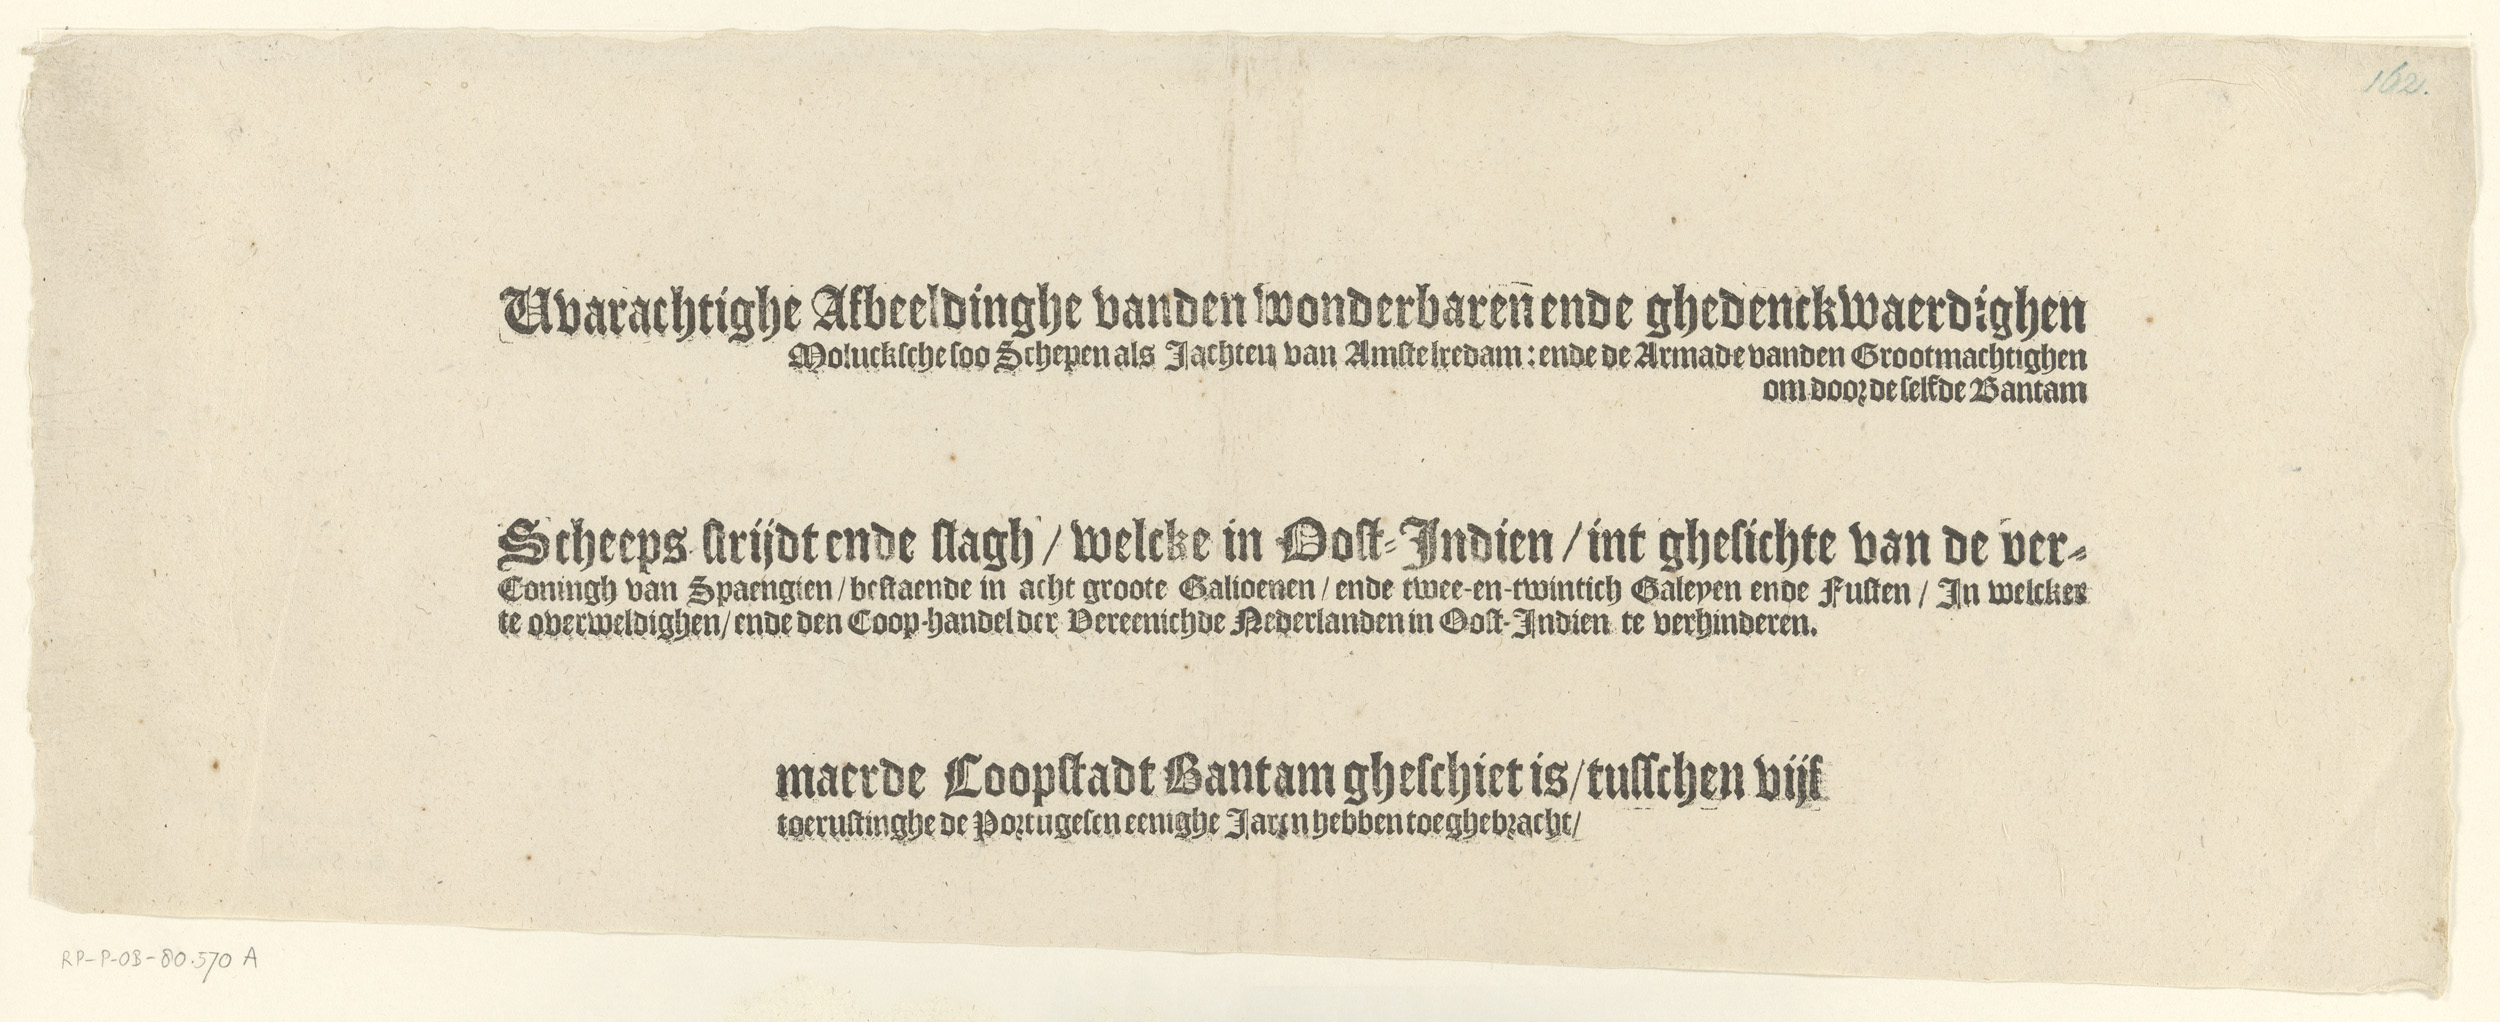 162.
Uvarachtighe Afbeeldinghe vanden wonderbaren ende ghedenckwaerdighen
Moluckſche ſoo Schepen als Jachten van Amſtelredam: ende de Armade vanden Grootmachtighen
om door de ſelfde Bantam
Scheeps ſtrijdt ende ſlagh / welcke in Ooſt-Indien / int gheſichte van de ver-
Coningh van Spaengien / beſtaende in acht groote Galioenen / ende twee-en-twintich Galeyen ende Fuſten / In welcker
te overweldighen / ende den Coop-handel der Vereenichde Nederlanden in Ooſt-Indien te verhinderen.
maerde Coopſtadt Bantam gheſchiet is / tuſſchen vijf
toeruſtinghe de Portugeſen eenighe Jaren hebben toeghebracht /
RP-P-OB-80.570 A